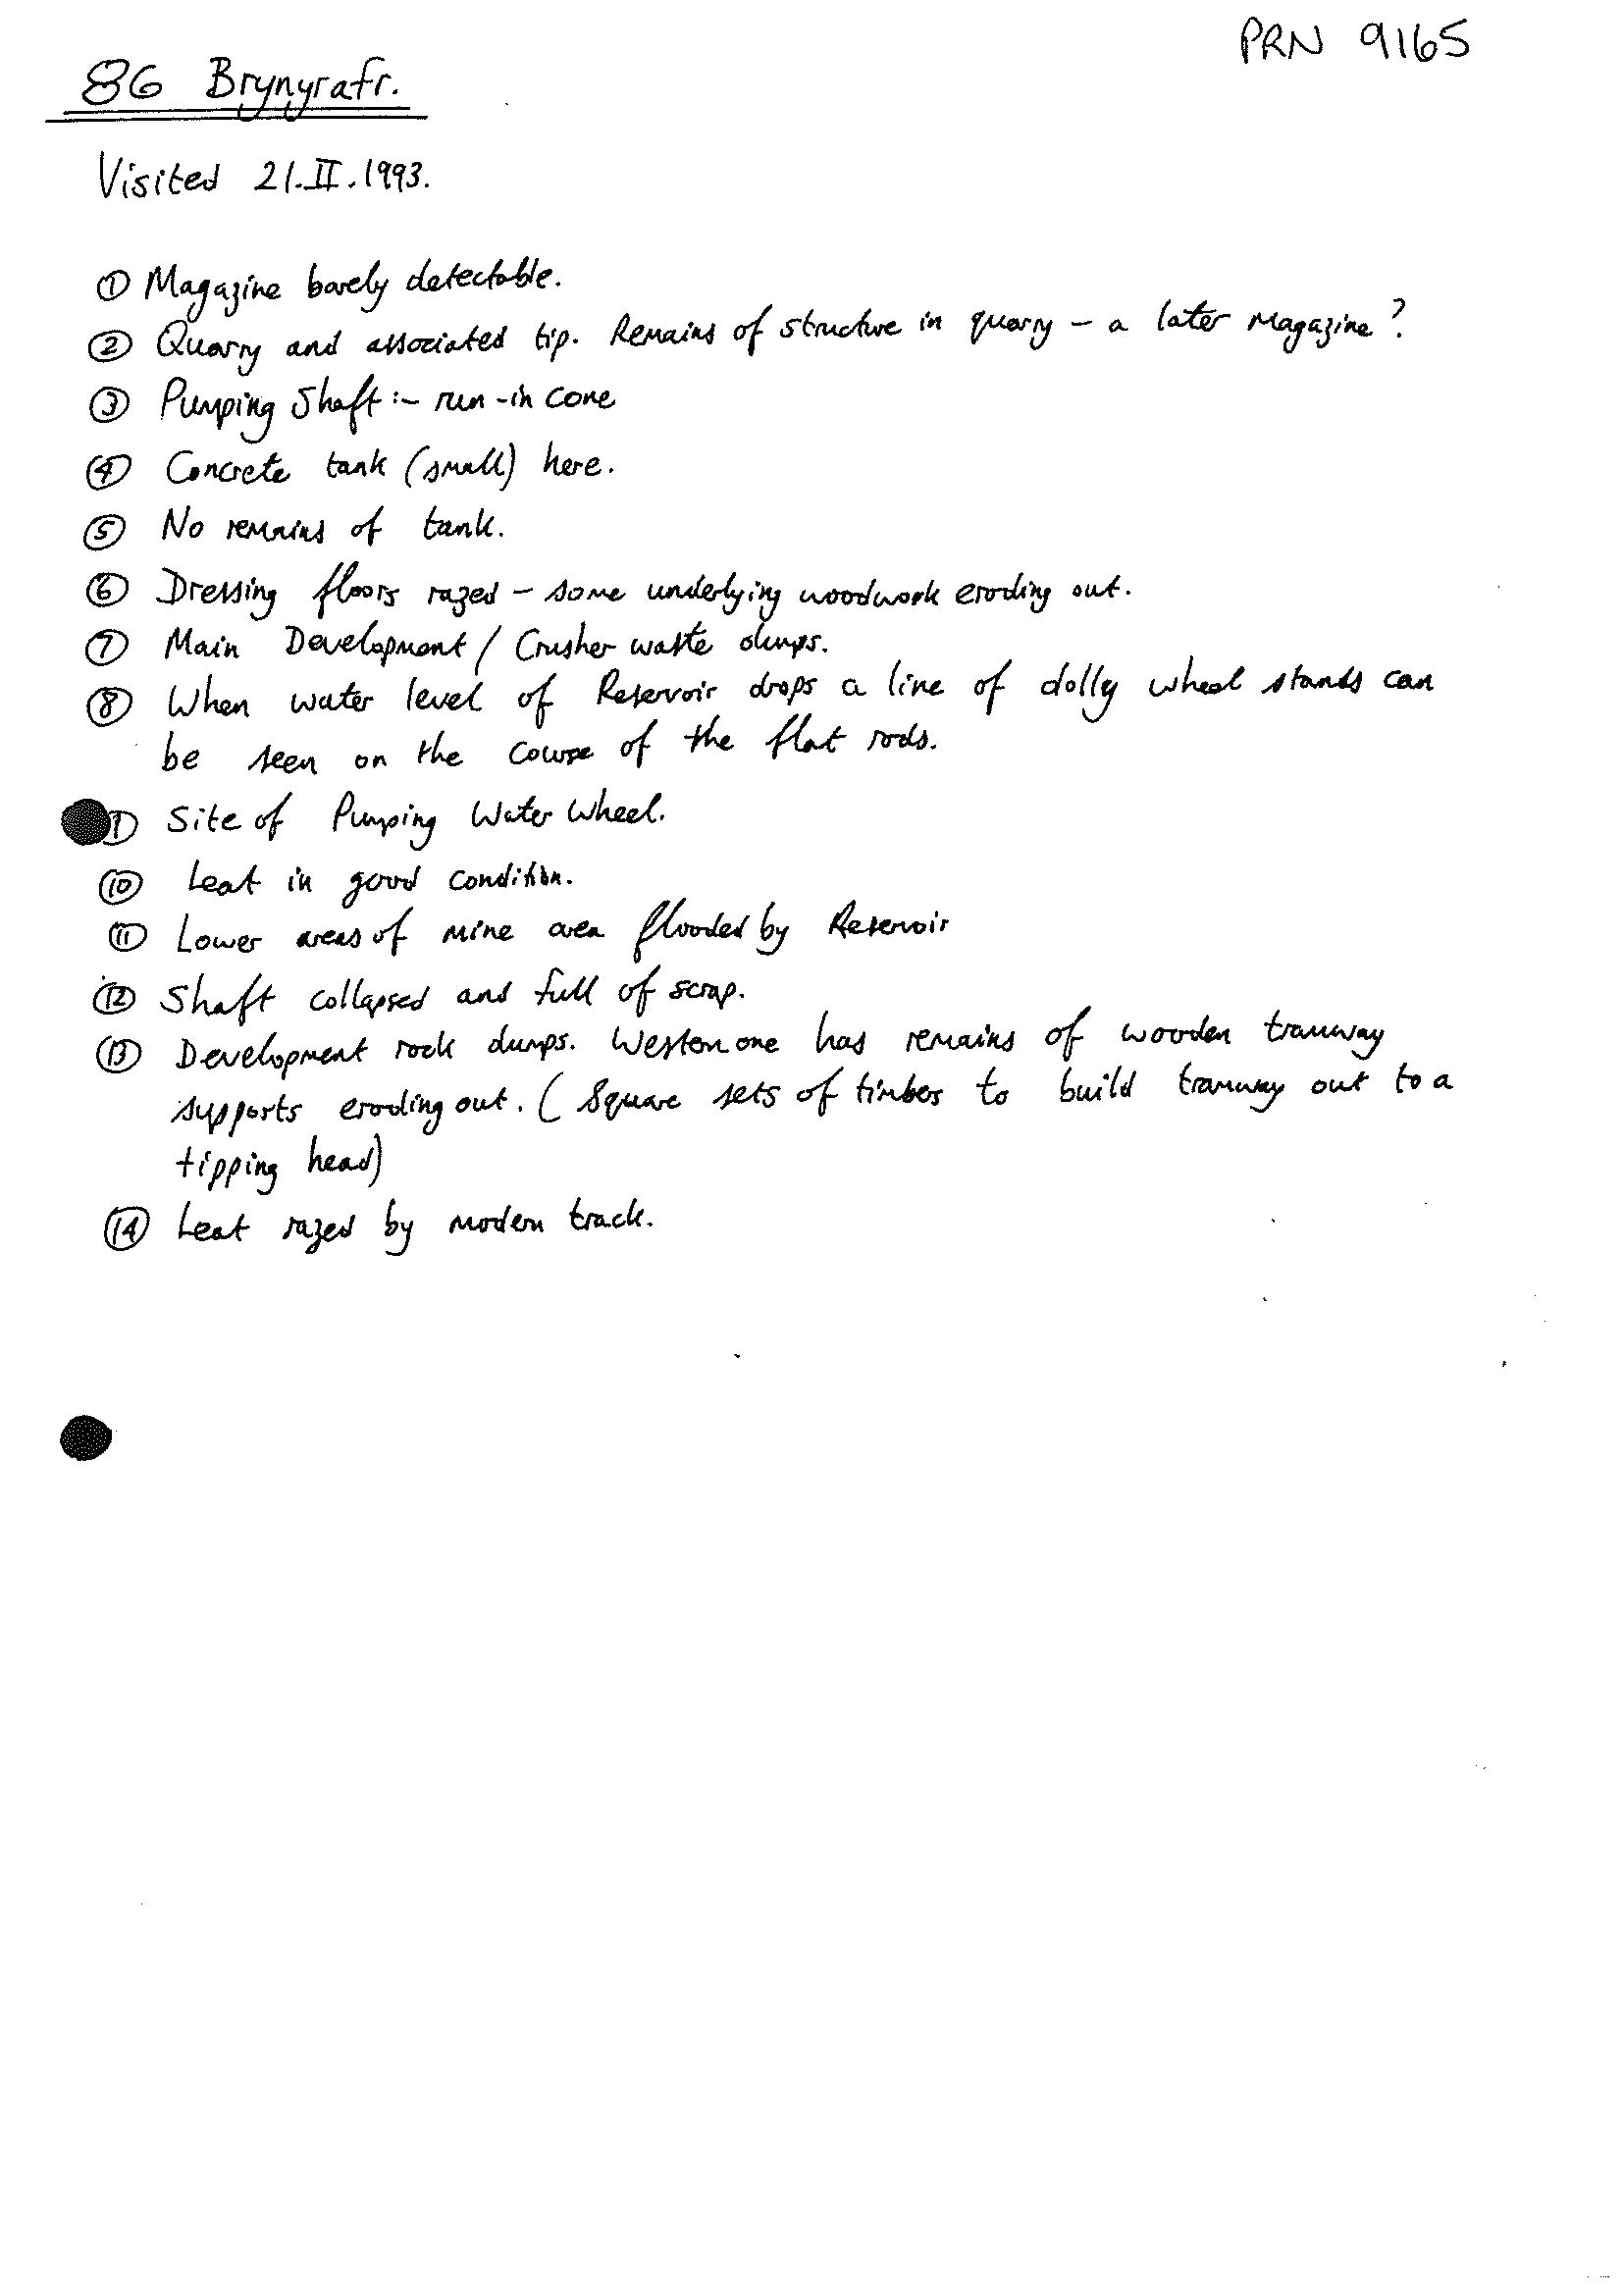 PRN 9165
86 Brynyrafr.
Visited 21.II.1993.
① Magazine barely detectable.
② Quarry and associated tip. Remains of structure in quarry – a later magazine?
③ Pumping Shaft :- run-in cone
④ Concrete tank (small) here.
⑤ No remains of tank.
⑥ Dressing floors razed – some underlying woodwork eroding out.
⑦ Main Development / Crusher waste dumps.
⑧ When water level of Reservoir drops a line of dolly wheel stands can
be seen on the course of the flat rods.
Site of Pumping Water Wheel.
⑩ Leat in good condition.
⑪ Lower areas of mine area flooded by Reservoir
⑫ Shaft collapsed and full of scrap.
⑬ Development rock dumps. Western one has remains of wooden tramway
supports eroding out. (Square sets of timber to build tramway out to a
tipping head)
⑭ Leat razed by modern track.